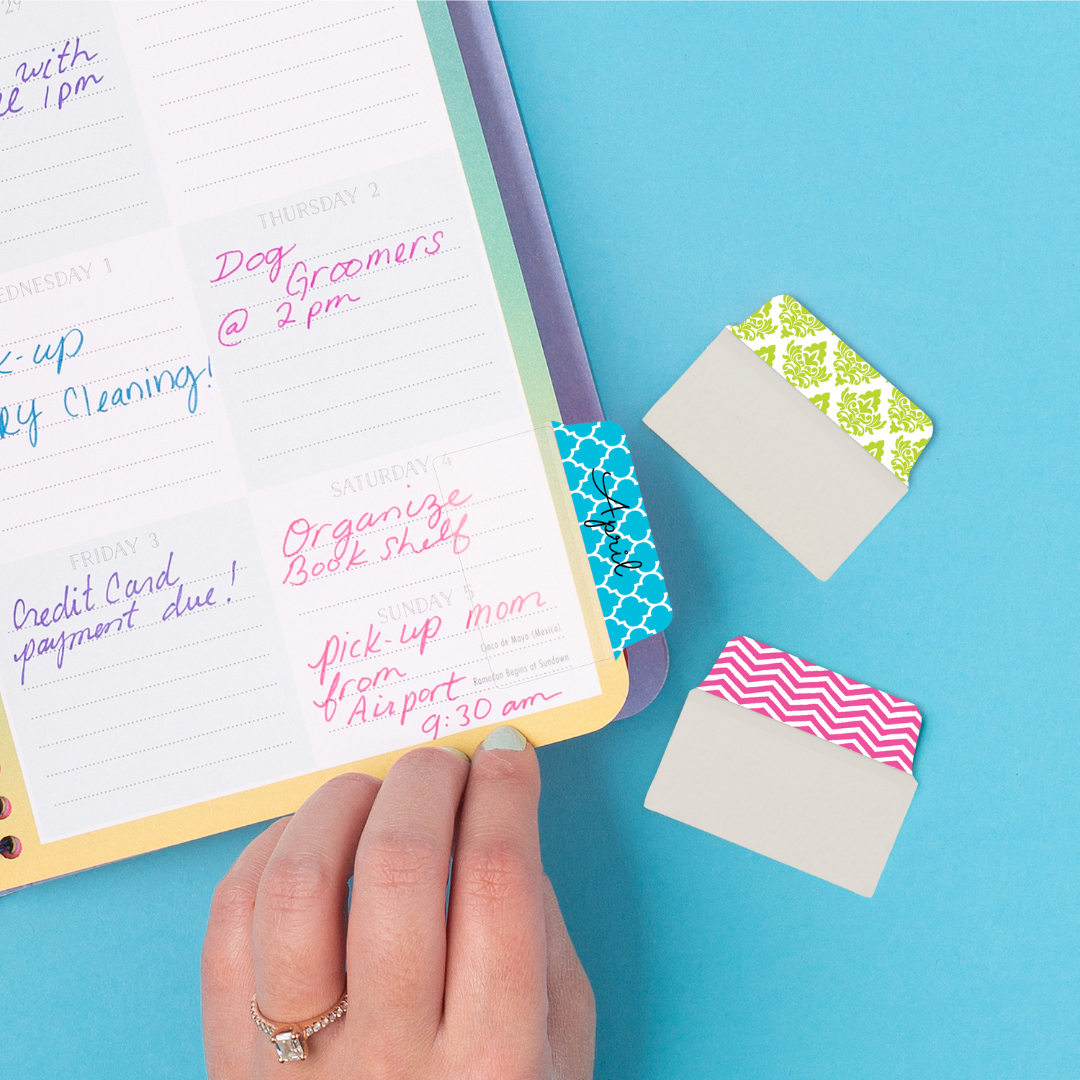 29
with
1pm
WEDNESDAY 1
-up
Cleaning!
THURSDAY 2
Dog
Groomers
@ 2pm
FRIDAY 3
Credit Card
payment due!
SATURDAY 4
Organize
Book Shelf
SUNDAY 5
pick-up mom
from
Airport
9:30 am
Cinco de Mayo (Mexico)
Ramadan Begins at Sundown
April